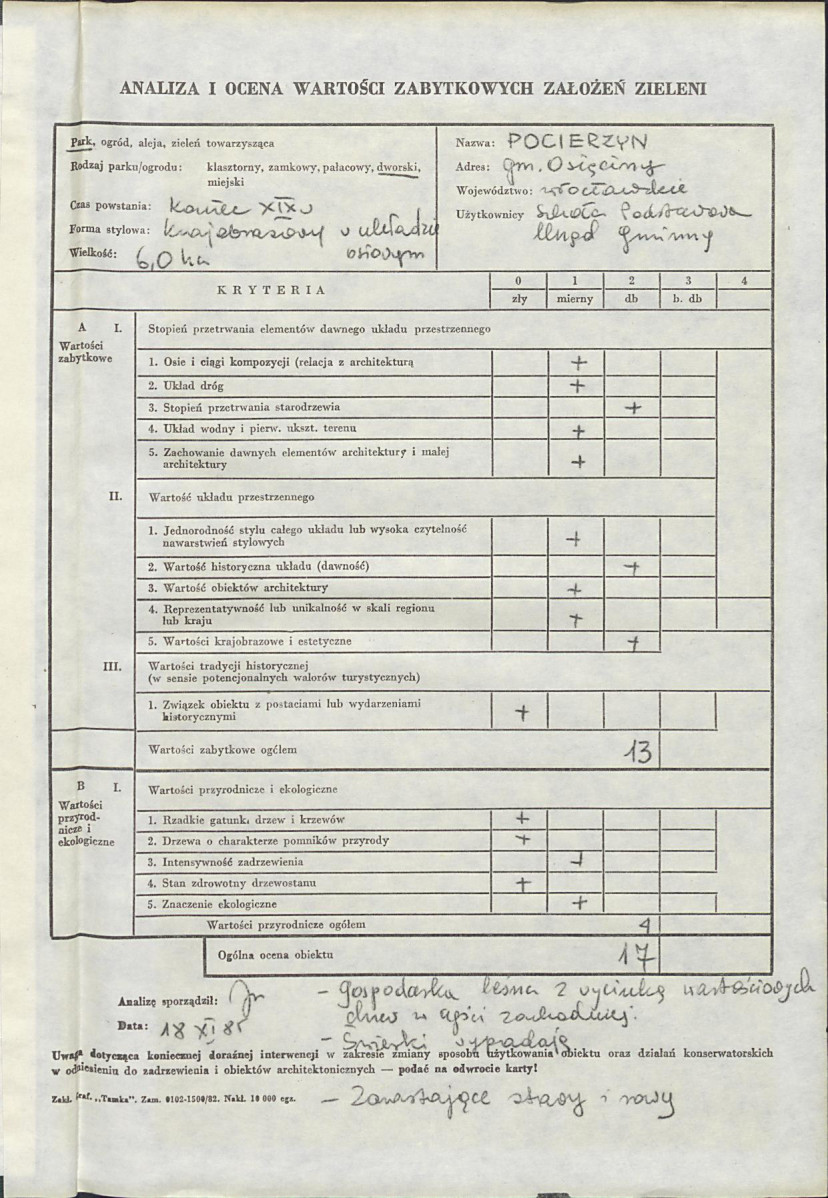 ANALIZA I OCENA WARTOŚCI ZABYTKOWYCH ZAŁOŻEŃ ZIELENI
Park, ogród, aleja, zieleń towarzysząca
Rodzaj parku/ogrodu: klasztorny, zamkowy, pałacowy, dworski,
miejski
Czas powstania: koniec XIX w
Forma stylowa: krajobrazowy w układzie
osiowym
Wielkość: 6,0 ha
Nazwa: POCIERZYN
Adres: gm. Osięciny
Województwo: włocławskie
Użytkownicy Szkoła Podstawowa
Urząd gminny
KRYTERIA
0 1 2 3 4
zły mierny db b. db
A I. Stopień przetrwania elementów dawnego układu przestrzennego
Wartości
zabytkowe
1. Osie i ciągi kompozycji (relacja z architekturą +
2. Układ dróg +
3. Stopień przetrwania starodrzewia +
4. Układ wodny i pierw. ukszt. terenu +
5. Zachowanie dawnych elementów architektury i małej
architektury +
II. Wartość układu przestrzennego
1. Jednorodność stylu całego układu lub wysoka czytelność
nawarstwień stylowych +
2. Wartość historyczna układu (dawność) +
3. Wartość obiektów architektury +
4. Reprezentatywność lub unikalność w skali regionu
lub kraju +
5. Wartości krajobrazowe i estetyczne +
III. Wartości tradycji historycznej
(w sensie potencjonalnych walorów turystycznych)
1. Związek obiektu z postaciami lub wydarzeniami
historycznymi +
Wartości zabytkowe ogółem 13
B I. Wartości przyrodnicze i ekologiczne
Wartości
przyrod-
nicze i
ekologiczne
1. Rzadkie gatunki drzew i krzewów +
2. Drzewa o charakterze pomników przyrody +
3. Intensywność zadrzewienia +
4. Stan zdrowotny drzewostanu +
5. Znaczenie ekologiczne +
Wartości przyrodnicze ogółem 4
Ogólna ocena obiektu 17
Analizę sporządził:
- gospodarka leśna z wycinką wartościowych
drzew w części zachodniej.
Data: 18 XI 85
- Świerki wypadają
Uwaga dotycząca koniecznej doraźnej interwencji w zakresie zmiany sposobu użytkowania obiektu oraz działań konserwatorskich
w odniesieniu do zadrzewienia i obiektów architektonicznych — podać na odwrocie karty!
Zakł. graf. „Tamka". Zam. 0102-1500/82. Nakł. 10 000 egz.
- Zarastające stawy i rowy